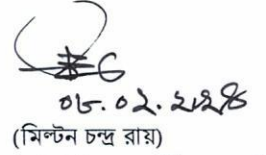 ০৮.০২.২০২৪
(মিল্টন চন্দ্র রায়)